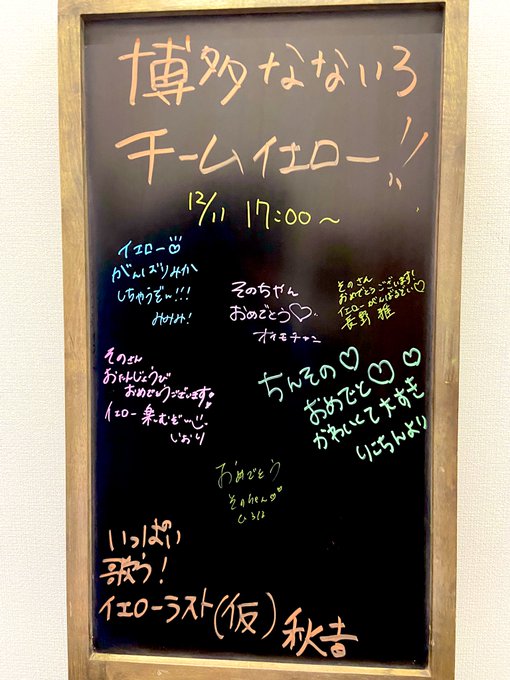 博多なないろ
チームイエロー!!
12/11 17:00～
イエロー
がんばりみか
しちゃうぞぃ!!!
みみみ!
そのちゃん
おめでとう♡
オイモチャン
そのさん
おめでとうございます!
イエローがんばるぞい♡
長野 雅
そのさん
おたんじょうび
おめでとうございます!
イエロー楽しむぞぃ
しおり
ちんその♡
おめでと♡♡
かわいとて大すき
りこちんより
おめでとう
そのちゃん♡
ひろは
いっぱい
歌う!
イエローラスト(仮)
秋吉